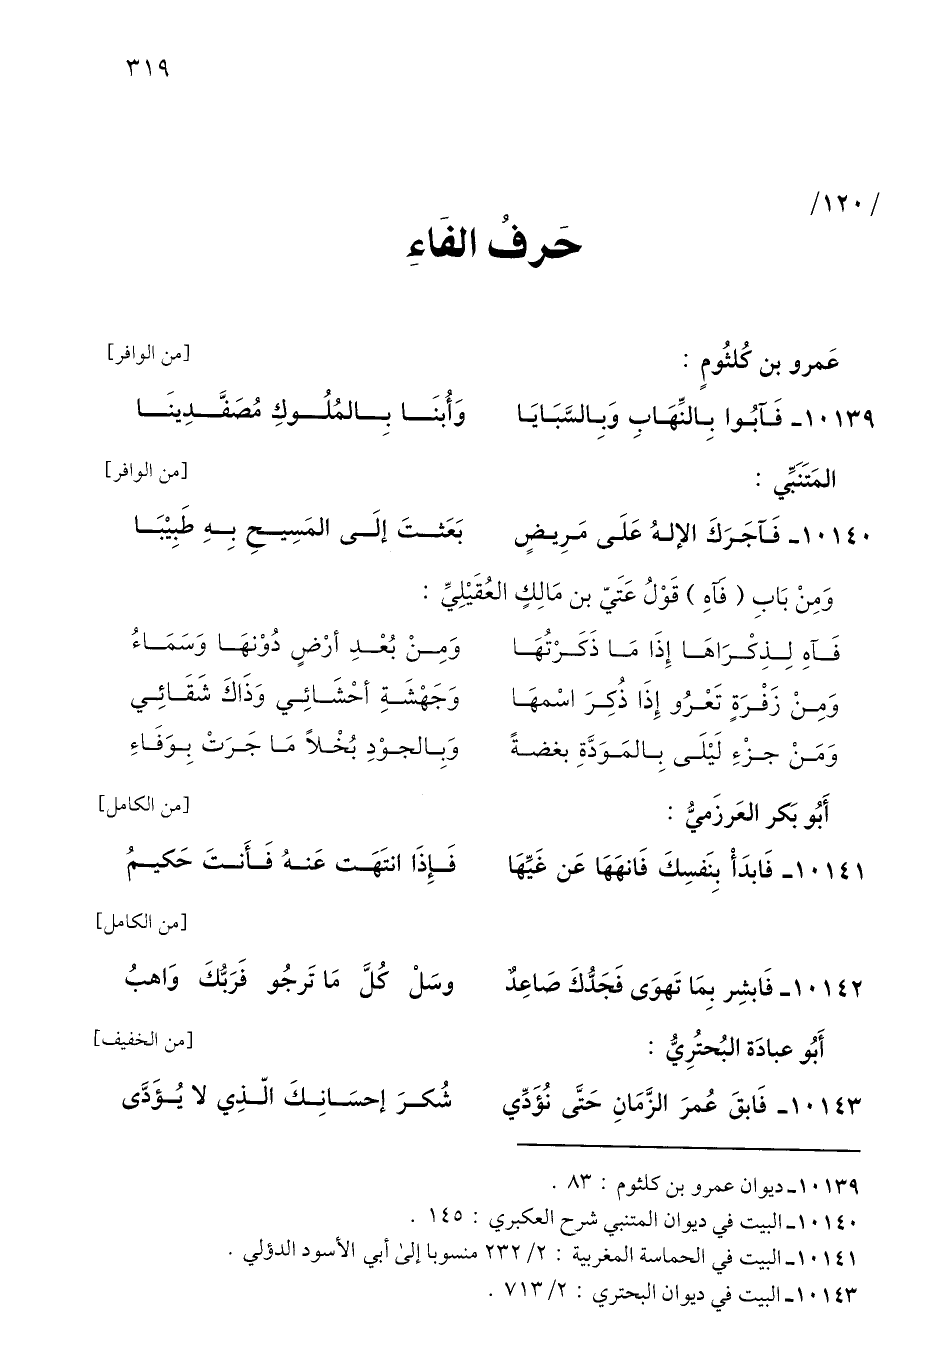 ٣١٩
/١٢٠/
حَرفُ الفَاءِ
عَمرو بن كُلثُومٍ : [من الوافر]
١٠١٣٩ـ فَـآبُـوا بِـالنِّهَـابِ وَبِـالسَّبَـايَـا وَأُبنَـا بِـالمُلُـوكِ مُصَفَّـدِينَـا
المَتَنَبِّي : [من الوافر]
١٠١٤٠ـ فَـآجَـرَكَ الإلـهُ عَلَـى مَـرِيـضٍ بَعَثـتَ إلَـى المَسِيـحِ بِـهِ طَبِيْبَـا
وَمِنْ بَابِ ( فَآهِ ) قَوْلُ عَتَيّ بن مَالِكٍ العُقَيْلِيِّ :
فَـآهِ لِـذِكْـرَاهَـا إذَا مَـا ذَكَـرْتُهَـا وَمِـنْ بُعْـدِ أرْضٍ دُوْنَهَـا وَسَمَـاءُ
وَمِـنْ زَفْـرَةٍ تَعْـرُو إذَا ذُكِـرَ اسْمهَـا وَجَهْشَـةِ أحْشَـائِـي وَذَاكَ شَقَـائِـي
وَمَـنْ جـزْءِ لَيْلَـى بِـالمَـوَدَّةِ بغضـةً وَبِـالجـوْدِ بُخْـلاً مَـا جَـرَتْ بِـوَفَـاءِ
أَبُو بَكر العَرزَميُّ : [من الكامل]
١٠١٤١ـ فَابدَأْ بِنَفسِكَ فَانهَهَا عَن غَيِّهَا فَـإِذَا انتَهَـت عَنـهُ فَـأَنـتَ حَكيـمُ
[من الكامل]
١٠١٤٢ـ فَابشِر بِمَا تَهوَى فَجَدُّكَ صَاعِدٌ وسَلْ كُلَّ مَا تَرجُو فَرَبُّكَ وَاهبُ
أَبُو عبادَة البُحتُرِيُّ : [من الخفيف]
١٠١٤٣ـ فَابقَ عُمرَ الزَّمَانِ حَتَّى نُؤَدِّي شُكـرَ إحسَـانِـكَ الّـذِي لا يُـؤَدَّى
١٠١٣٩ـ ديوان عمرو بن كلثوم : ٨٣ .
١٠١٤٠ـ البيت في ديوان المتنبي شرح العكبري : ١٤٥ .
١٠١٤١ـ البيت في الحماسة المغربية : ٢/ ٢٣٢ منسوبا إلىٰ أبي الأسود الدؤلي .
١٠١٤٣ـ البيت في ديوان البحتري : ٢/ ٧١٣ .